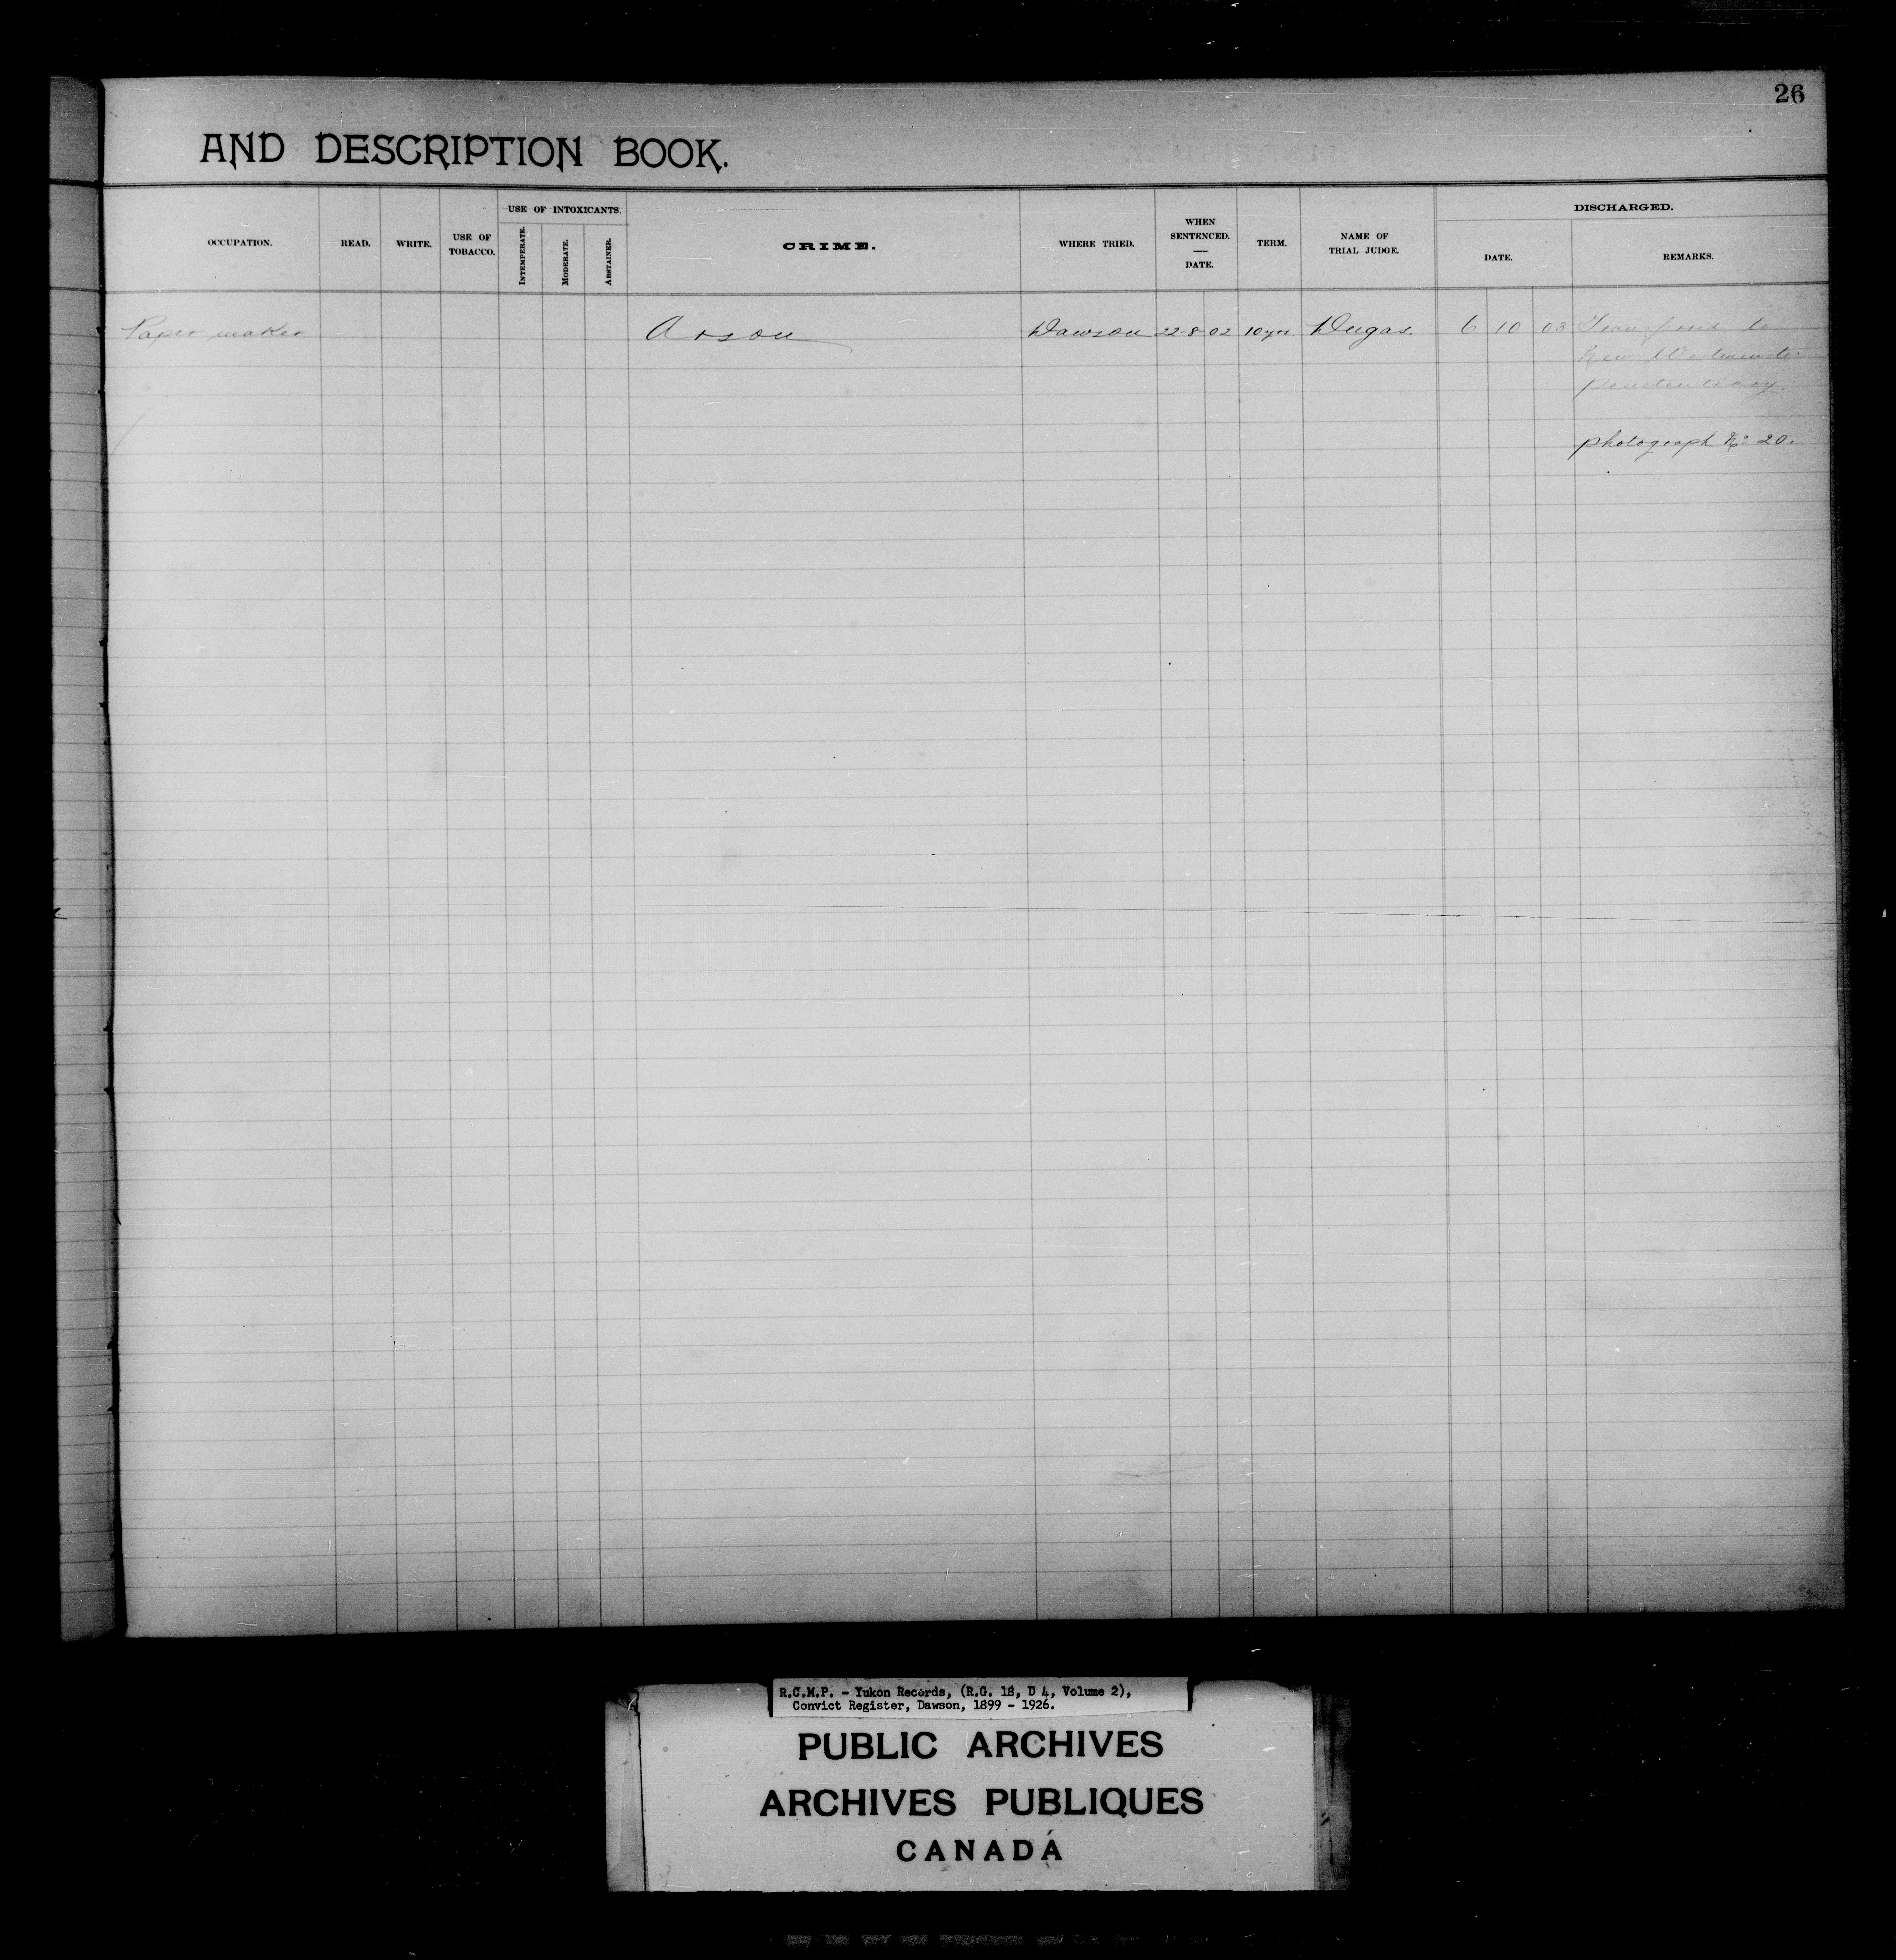 26
AND DESCRIPTION BOOK.
OCCUPATION. READ. WRITE. USE OF TOBACCO. USE OF INTOXICANTS. INTEMPERATE. MODERATE. ABSTAINER. CRIME. WHERE TRIED. WHEN SENTENCED. — DATE. TERM. NAME OF TRIAL JUDGE. DISCHARGED. DATE. REMARKS.
Paper maker Arson Dawson 22-8-02 10 yrs Dugas. 6 10 03 to
New Westminster
penetentiary.
photograph No 20.
R.C.M.P. - Yukon Records, (R.G. 18, D 4, Volume 2),
Convict Register, Dawson, 1899 - 1926.
PUBLIC ARCHIVES
ARCHIVES PUBLIQUES
CANADA